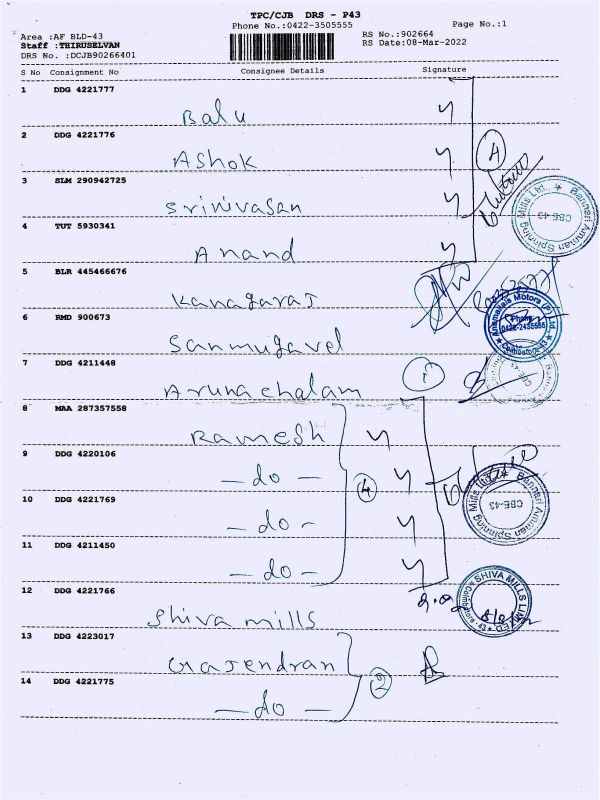 TPC/CJB DRS - P43
Phone No.:0422-3505555
Page No.:1
Area :AF BLD-43
Staff :THIRUSELVAN
DRS No. :DCJB90266401
RS No.:902664
RS Date:08-Mar-2022
S No Consignment No Consignee Details Signature
1 DDG 4221777
Balu
2 DDG 4221776
Ashok
4
3 SLM 290942725
Srinivasan
Bannari Amman Spinning Mills Ltd., ★
CBE-43
4 TUT 5930341
Anand
5 BLR 445466676
Kanagaraj
6 RMD 900673
Sanmugavel
Anamallais Motors (P) Ltd.,
Phone
0422-2435555
Coimbatore-43
7 DDG 4211448
Arunachalam
1
8 MAA 287357558
Ramesh
9 DDG 4220106
- do -
4
10 DDG 4221769
- do -
Bannari Amman Spinning Mills Ltd., ★
CBE-43
11 DDG 4211450
- do -
12 DDG 4221766
Shiva mills
SHIVA MILLS LIMITED
★ Coimbatore - 43 ★
13 DDG 4223017
Gajendran
14 DDG 4221775
- do -
2